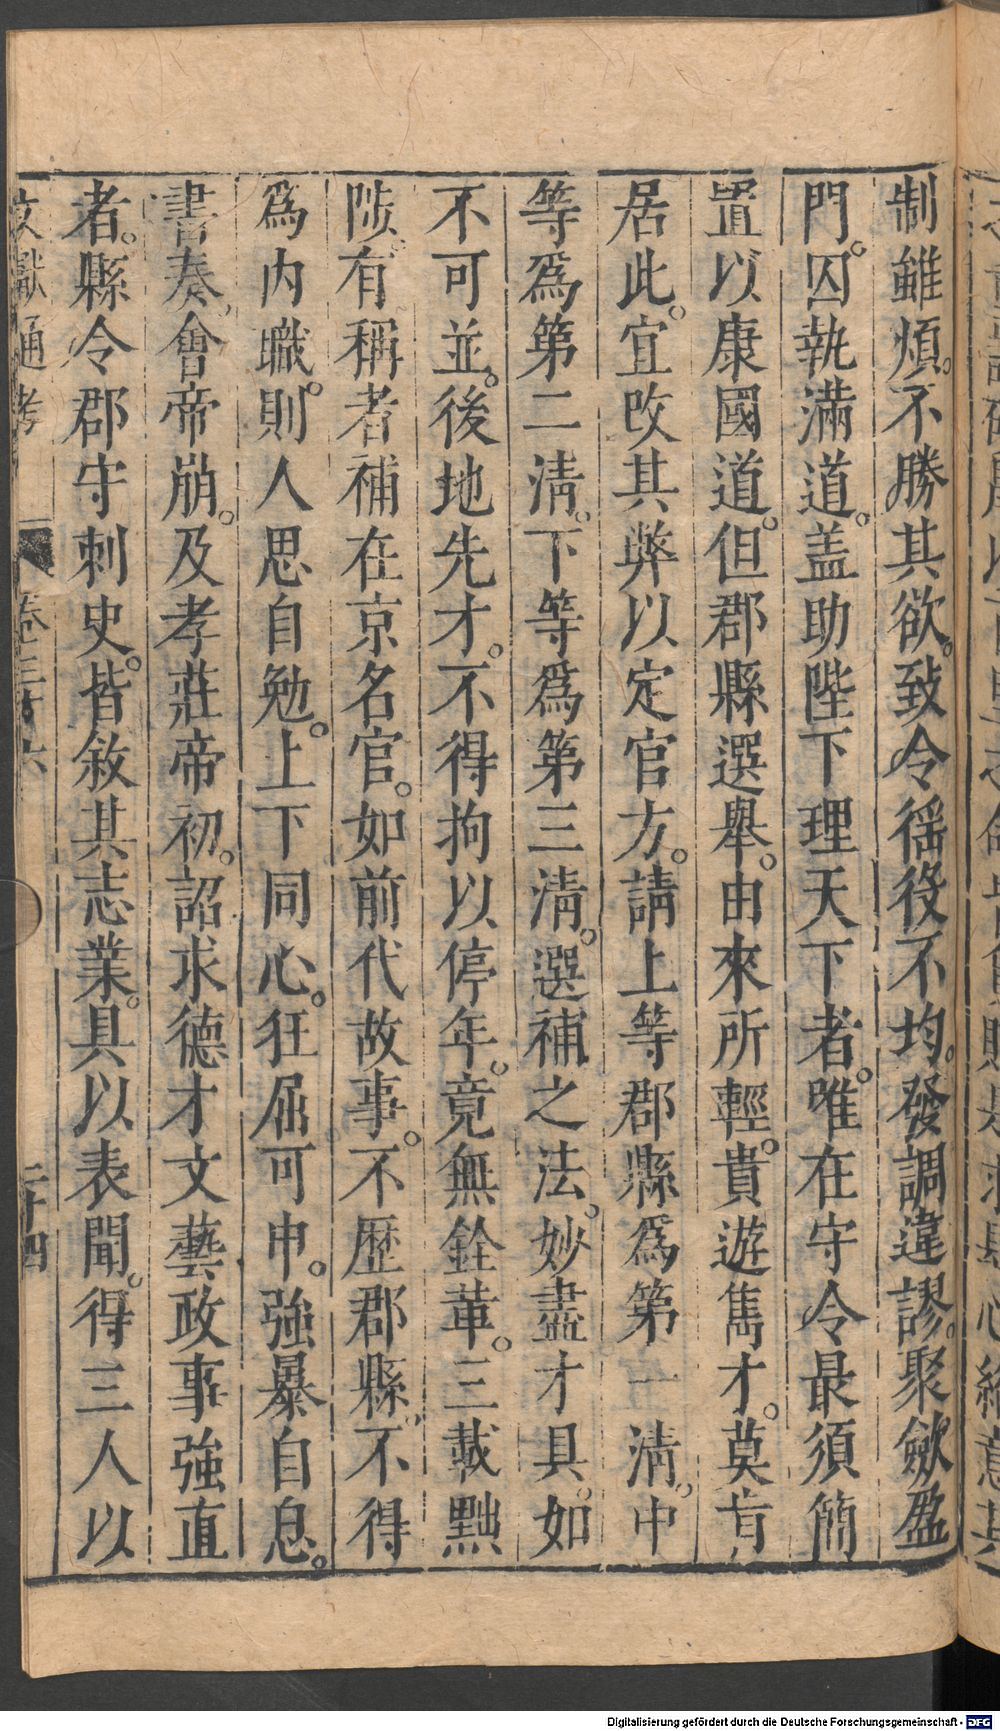 制雖煩。不勝其欲。致令徭役不均。發調違謬。聚斂盈
門。囚執滿道。盖助陛下理天下者。唯在守令最須簡
置以康國道。但郡縣選舉。由來所輕。貴遊雋才。莫肯
居此。宜攺其弊以定官方。請上等郡縣爲第一清。中
等爲第二清。下等爲第三清。選補之法。妙盡才具。如
不可並。後地先才。不得拘以停年。竟無銓革。三載黜
陟。有稱者補在京名官。如前代故事。不歷郡縣。不得
爲内職。則人思自勉。上下同心。狂屈可申。強暴自息。
書奏。會帝崩。及孝莊帝初。詔求德才文藝政事強直
者。縣令郡守刺史。皆敘其志業。具以表聞。得三人以
文獻通考 卷三十六 二十四
Digitalisierung gefördert durch die Deutsche Forschungsgemeinschaft - DFG